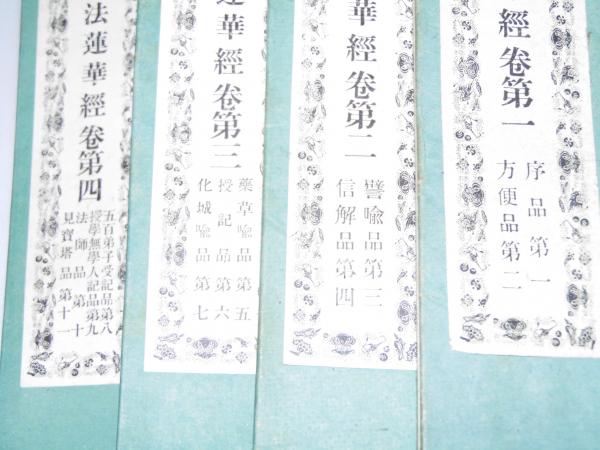 經卷第一
序品第一
方便品第二
華經卷第二
譬喩品第三
信解品第四
蓮華經卷第三
藥草喩品第五
授記品第六
化城喩品第七
法蓮華經卷第四
五百弟子受記品第八
授學無學人記品第九
法師品第十
見寶塔品第十一